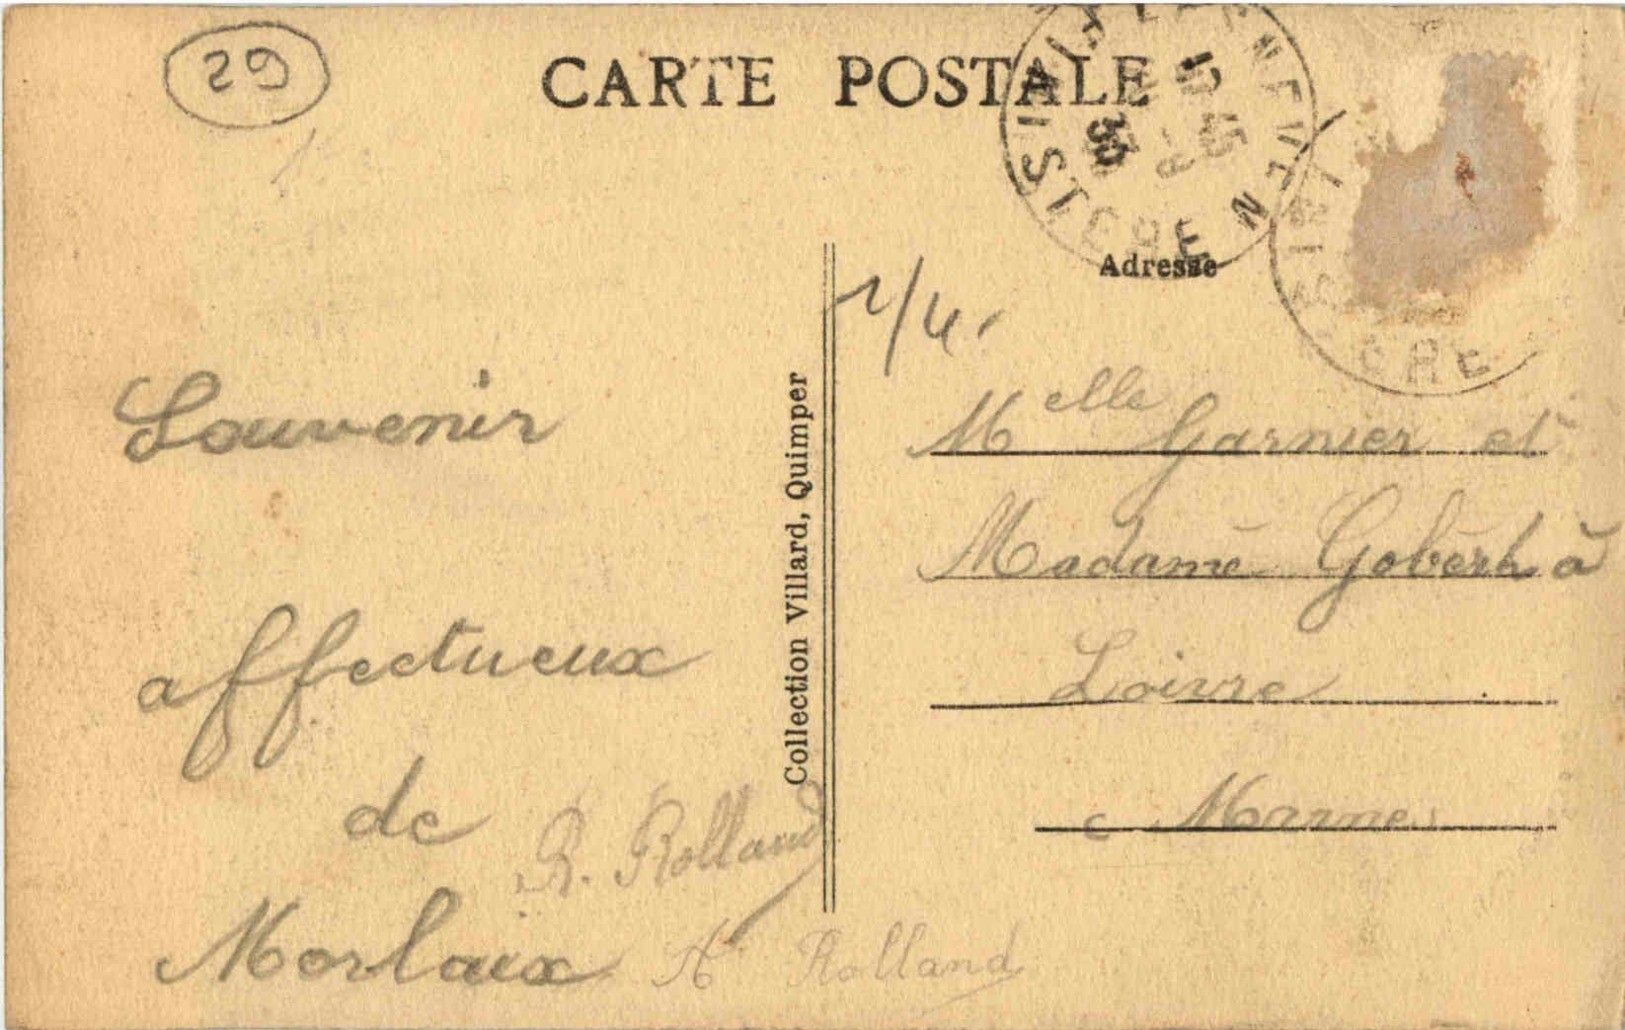 29
CARTE POSTALE
FINISTERE
15 45
30
Adresse
1/4.
Souvenir
affectueux
de
Morlaix
R. Rolland
A Rolland
Collection Villard, Quimper
Melle Garnier et
Madame Goberh à
Loivre
Marne